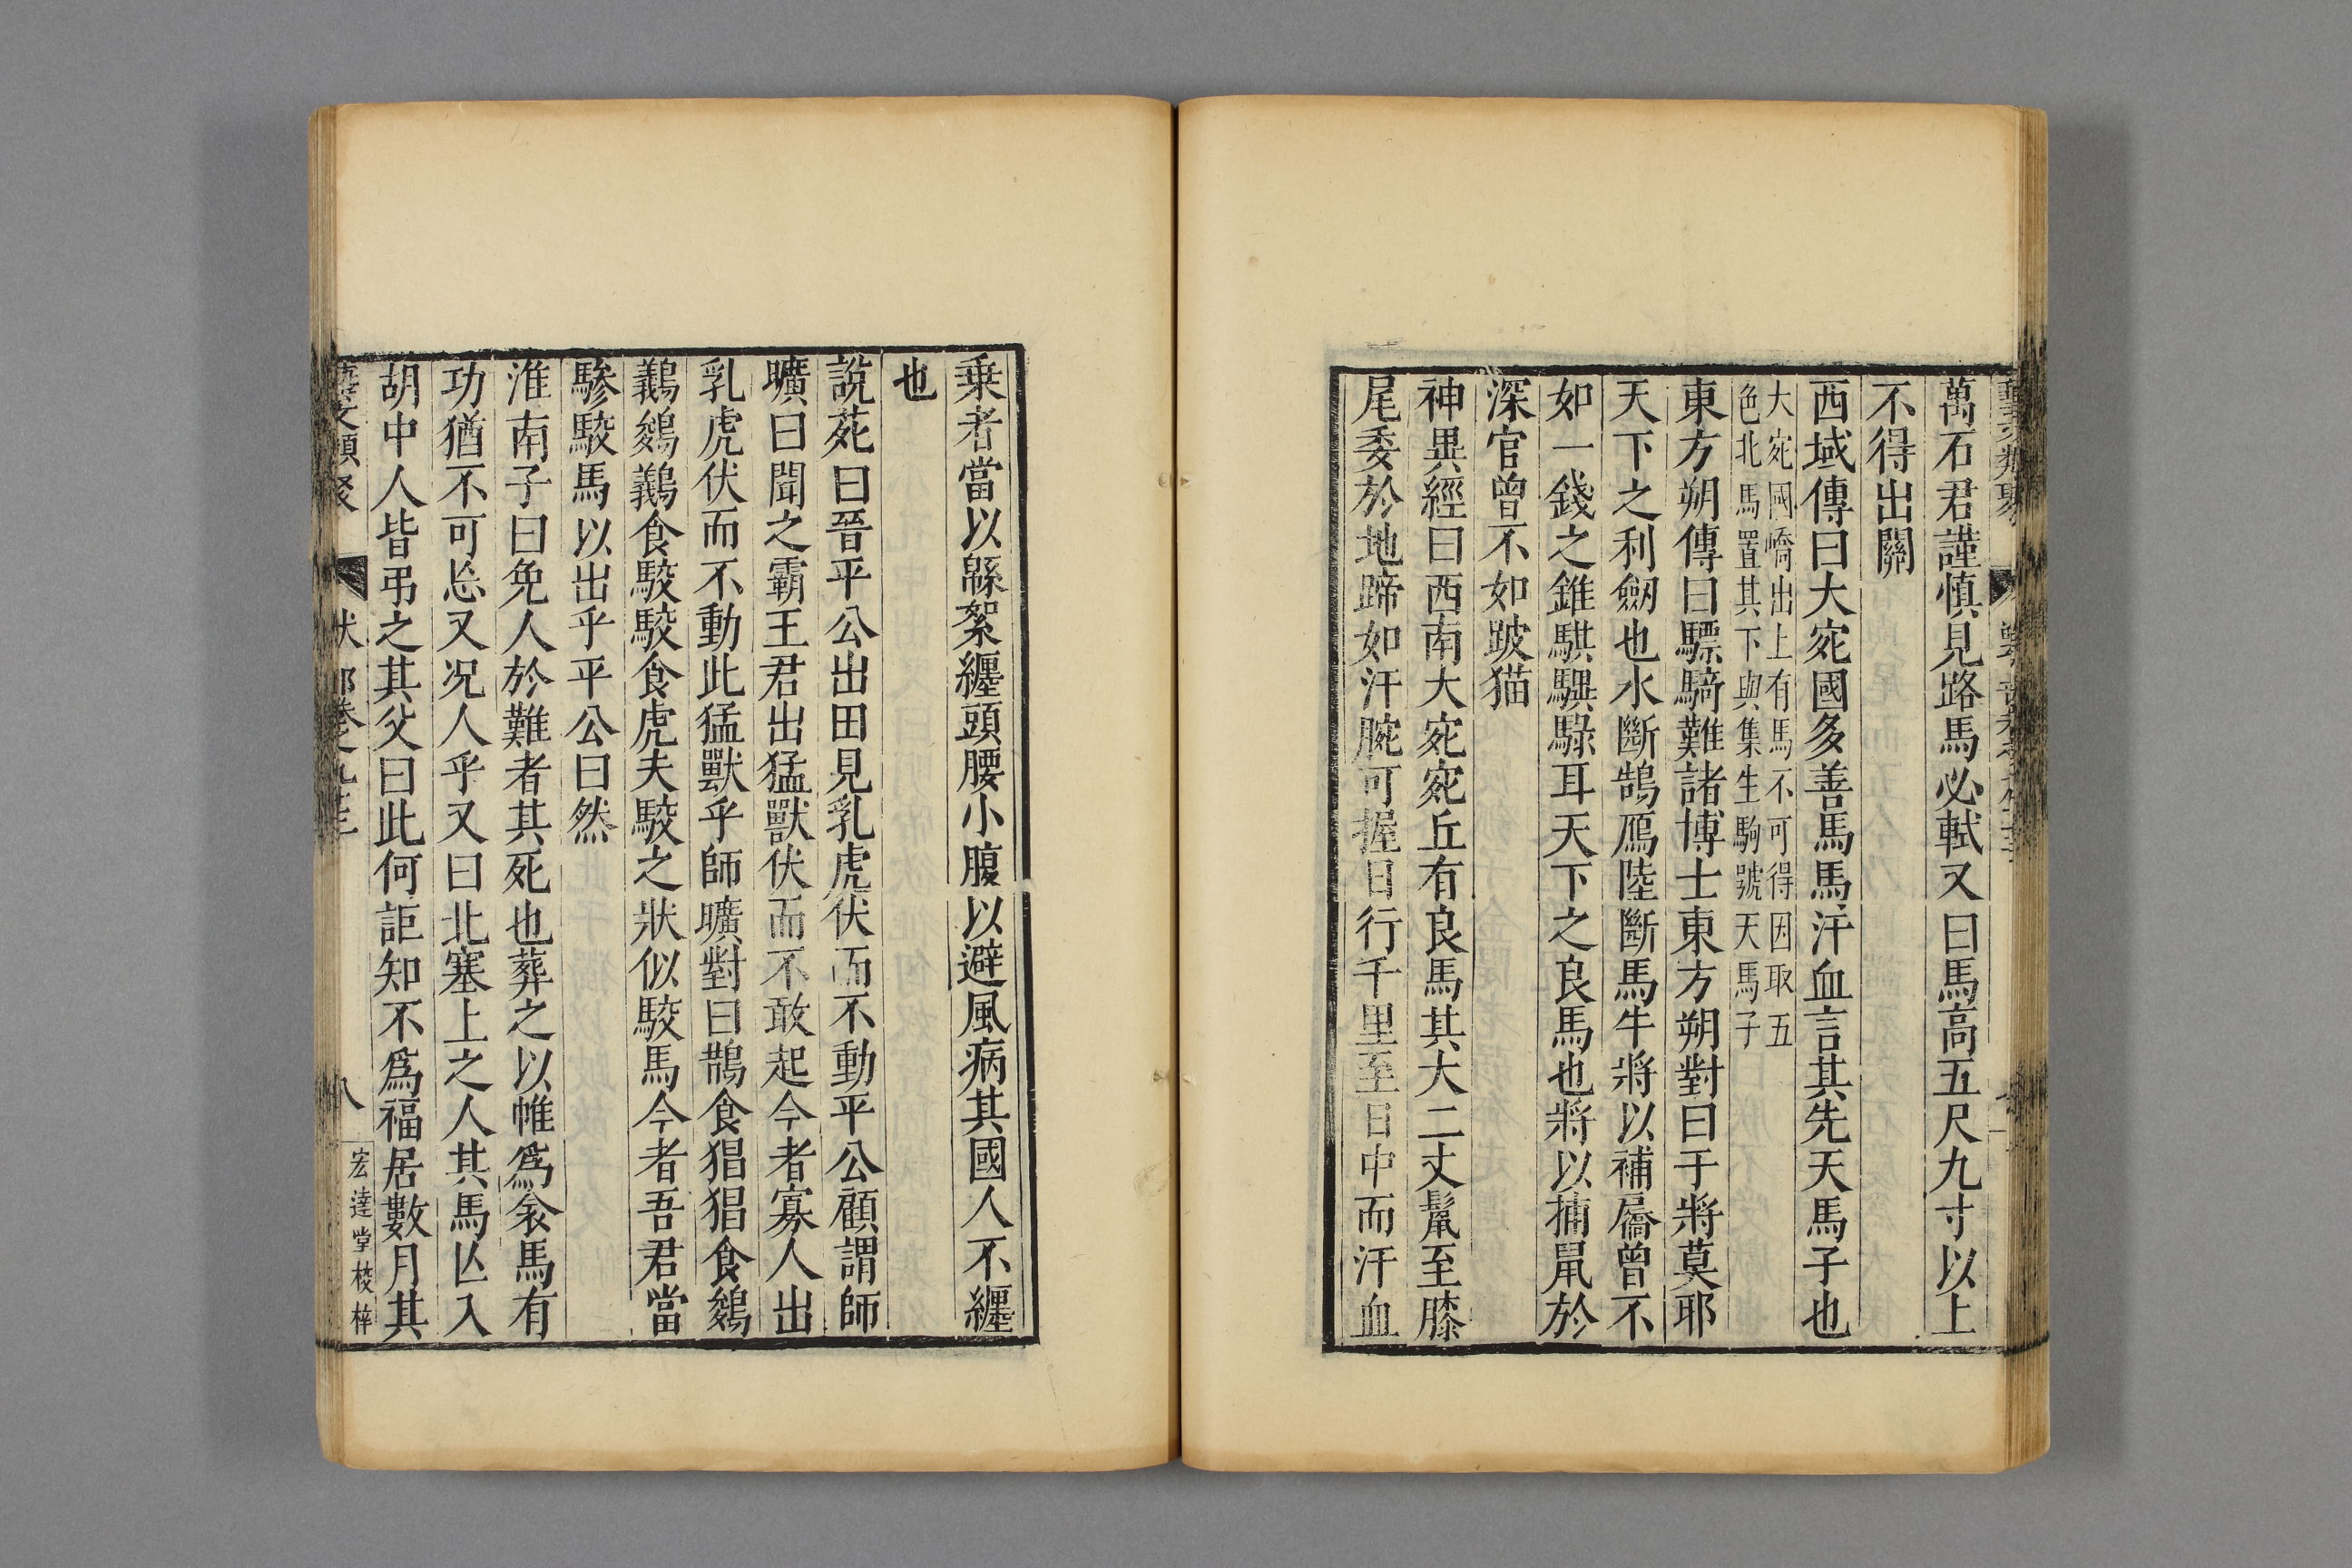 萬石君謹慎見路馬必軾又曰馬高五尺九寸以上
不得出關
西域傳曰大宛國多善馬馬汗血言其先天馬子也
大宛國嶠出上有馬不可得因取五
色北馬置其下與集生駒號天馬子
東方朔傳曰驃騎難諸博士東方朔對曰于將莫耶
天下之利劒也水斷鵠鴈陸斷馬牛將以補屩曾不
如一錢之錐騏驥騄耳天下之良馬也將以捕鼠於
深宮曾不如跛猫
神異經曰西南大宛宛丘有良馬其大二丈鬣至膝
尾委於地蹄如汗腕可握日行千里至日中而汗血
乗者當以緜絮纏頭腰小腹以避風病其國人不纏
也
說苑曰晉平公出田見乳虎伏而不動平公顧謂師
曠曰聞之霸王君出猛獸伏而不敢起今者寡人出
乳虎伏而不動此猛獸乎師曠對曰鵲食猖猖食鵕
鸃鵕鸃食駮駮食虎夫駮之狀似駮馬今者吾君當
驂駮馬以出乎平公曰然
淮南子曰免人於難者其死也葬之以帷爲衾馬有
功猶不可㤀又况人乎又曰北塞上之人其馬亾入
胡中人皆弔之其父曰此何詎知不爲福居數月其
藝文類聚 獸部卷之九十三 八 宏達堂校梓